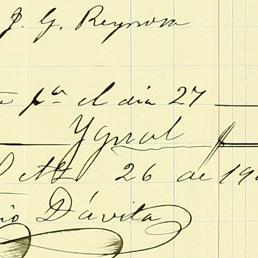 J. G. Reynosa
pª el dia 27
Ygual
26 de 19
Dávila